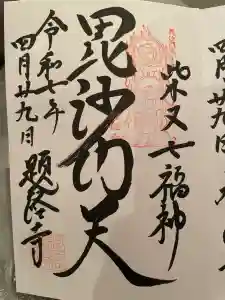 柴又七福神
毘沙門天
令和七年
四月廿九日
題経寺